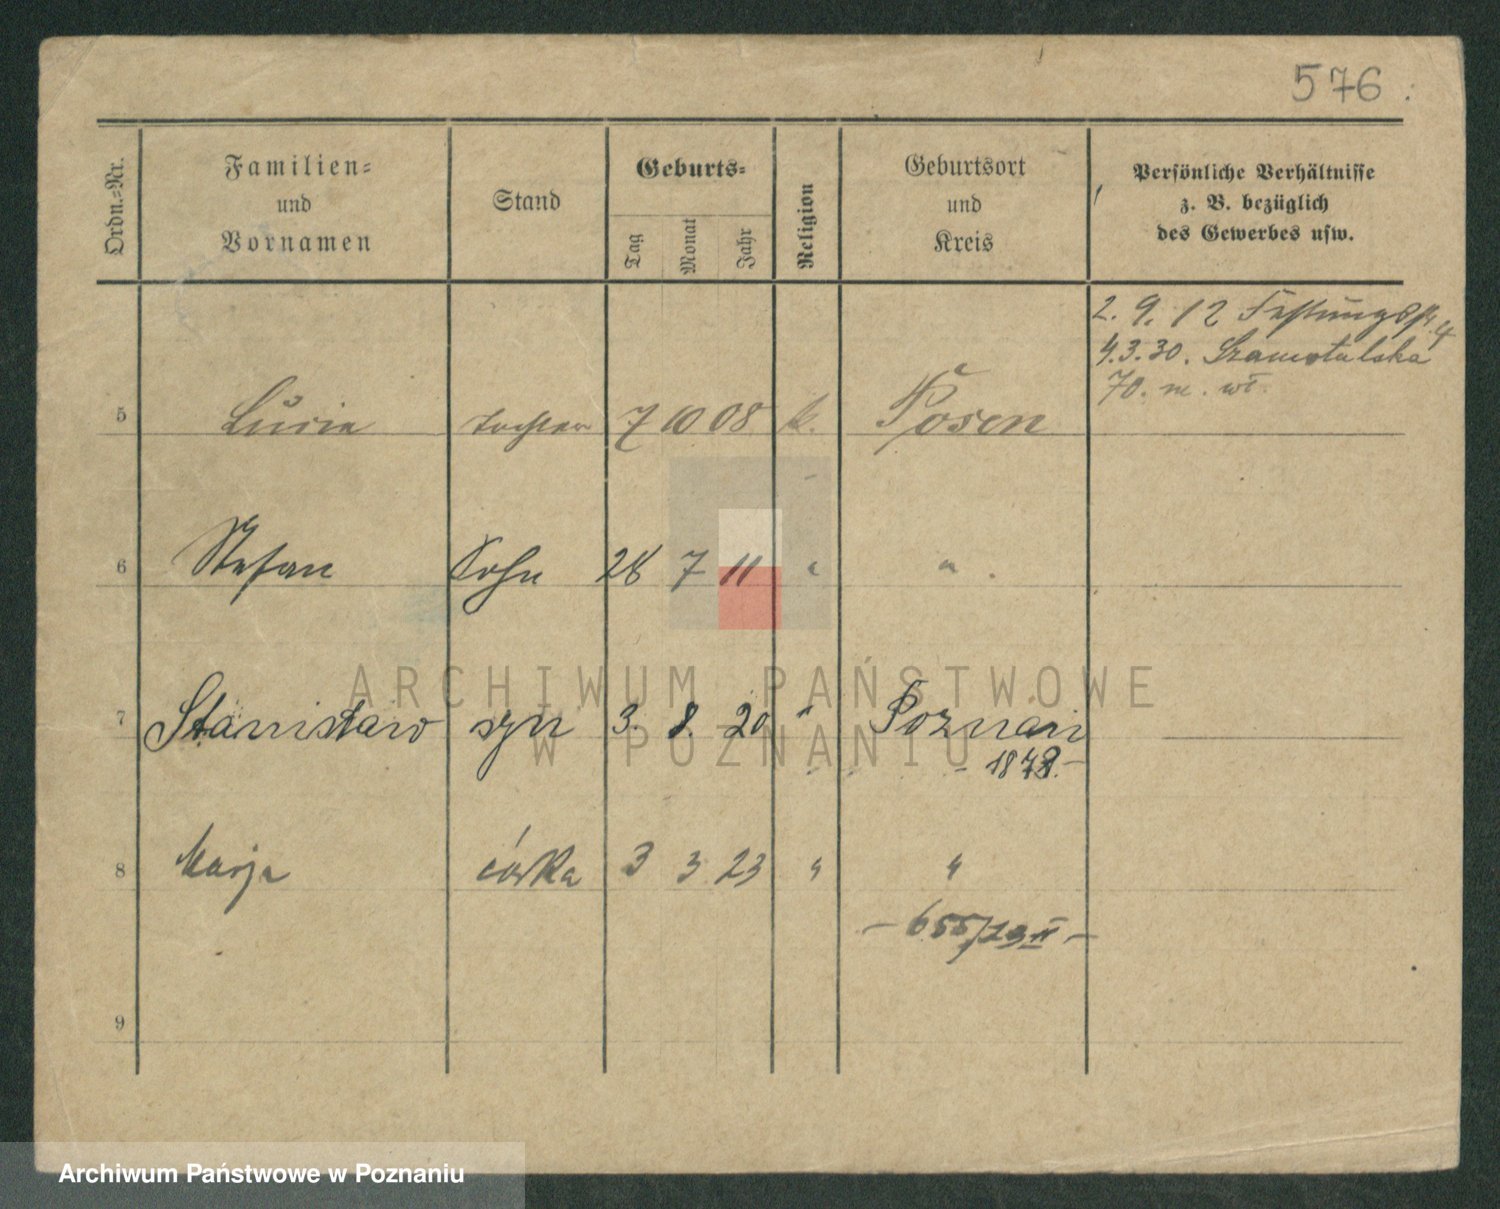 576.
Ordn.-Nr.
Familien-
und
Vornamen
Stand
Geburts-
Tag
Monat
Jahr
Religion
Geburtsort
und
Kreis
Persönliche Verhältnisse
z. B. bezüglich
des Gewerbes usw.
2. 9. 12 Festungsstr. 4
4.3.30. Szamotulska
70. m. wł.
5 Lucie Tochter 7 10 08 k. Posen
6 Stefan Sohn 28 7 11 " " .
7 Stanisław syn 3. 8. 20 " Poznań
8 Marja córka 3 3 23 " "
- 655/23 II -
9
ARCHIWUM PAŃSTWOWE
W POZNANIU
Archiwum Państwowe w Poznaniu